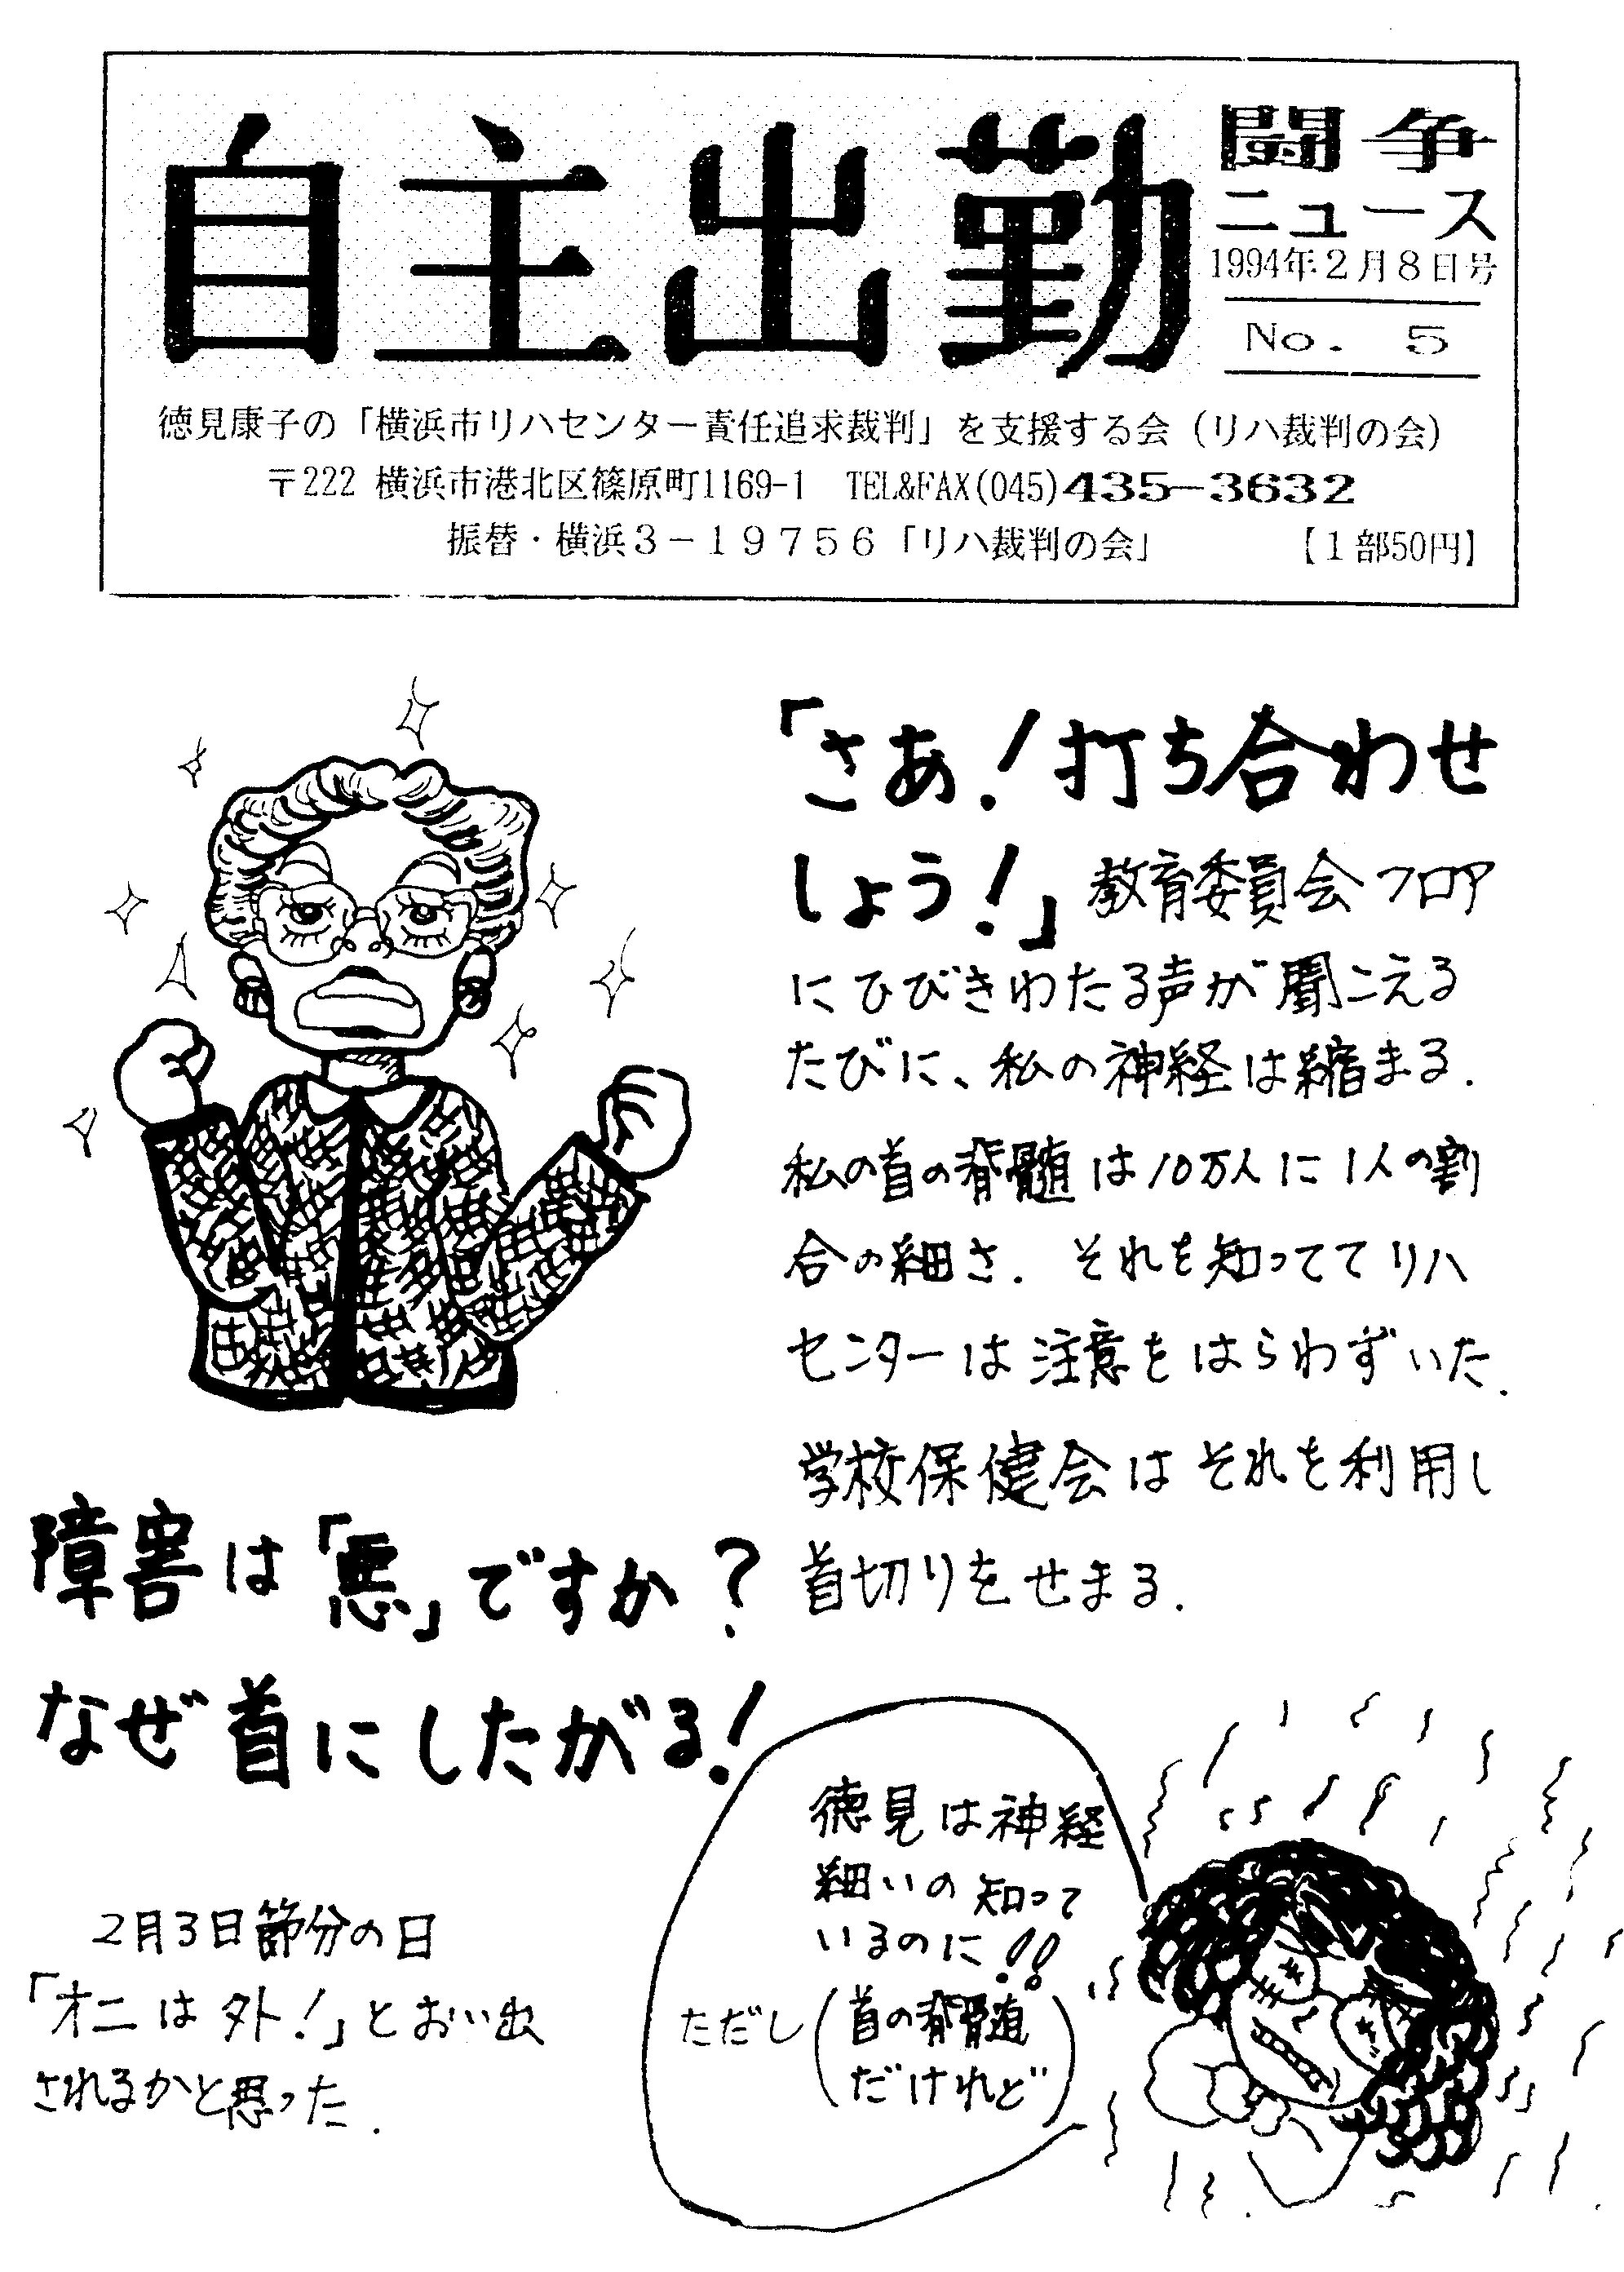 自主出勤
闘争
ニュース
1994年2月8日号
No. 5
徳見康子の「横浜市リハセンター責任追求裁判」を支援する会（リハ裁判の会）
〒222 横浜市港北区篠原町1169-1 TEL&FAX(045)435-3632
振替・横浜3-19756「リハ裁判の会」 【1部50円】
「さあ！打ち合わせ
しょう！」教育委員会フロア
にひびきわたる声が聞こえる
たびに、私の神経は縮まる.
私の首の脊髄は10万人に1人の割
合の細さ. それを知っててリハ
センターは注意をはらわずいた.
学校保健会はそれを利用し
首切りをせまる.
障害は「悪」ですか？
なぜ首にしたがる！
2月3日節分の日
「オニは外！」とおい出
されるかと思った.
徳見は神経
細いの知って
いるのに！！
ただし（首の脊髄
だけれど）